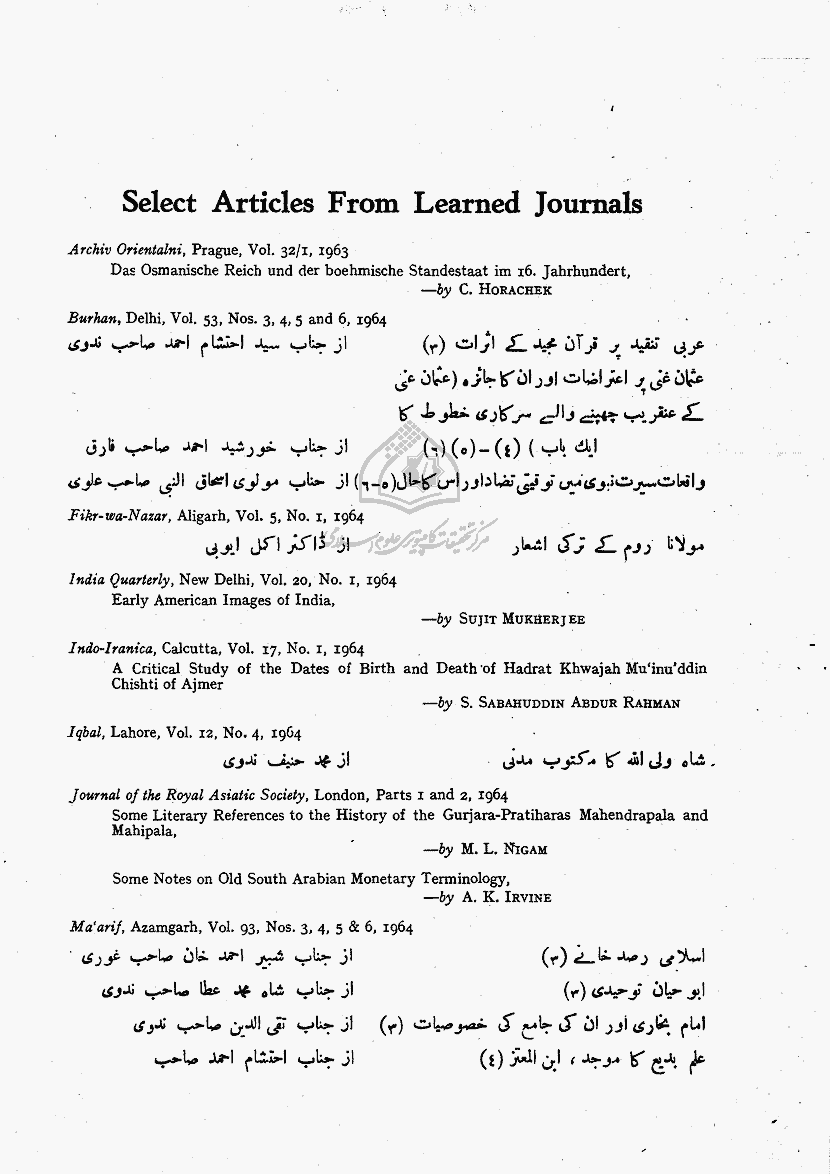 Select Articles From Learned Journals
Archiv Orientalni, Prague, Vol. 32/1, 1963
Das Osmanische Reich und der boehmische Standestaat im 16. Jahrhundert,
—by C. HORACHEK
Burhan, Delhi, Vol. 53, Nos. 3, 4, 5 and 6, 1964
عربی تنقید پر قرآن مجید کے اثرات (۳) از جناب سید احتشام احمد صاحب ندوی
عثمان غنی پر اعتراضات اور ان کا جائزہ (عثمان غنی
کے عنقریب چھپنے والے سرکاری خطوط کا
ایک باب ) (٤) - (٥) (٦) از جناب خورشید احمد صاحب فارق
واقعات سیرت نبوی میں توقیتی تضاد اور اس کا حال (٥-٦) از جناب مولوی اسحاق النبی صاحب علوی
Fikr-wa-Nazar, Aligarh, Vol. 5, No. 1, 1964
مولانا روم کے ترکی اشعار از ڈاکٹر اکمل ایوبی
مرکز تحقیقات کامپیوتری علوم اسلامی
India Quarterly, New Delhi, Vol. 20, No. 1, 1964
Early American Images of India,
—by SUJIT MUKHERJEE
Indo-Iranica, Calcutta, Vol. 17, No. 1, 1964
A Critical Study of the Dates of Birth and Death of Hadrat Khwajah Mu‘inu’ddin
Chishti of Ajmer
—by S. SABAHUDDIN ABDUR RAHMAN
Iqbal, Lahore, Vol. 12, No. 4, 1964
شاہ ولی اللہ کا مکتوب مدنی از محمد حنیف ندوی
Journal of the Royal Asiatic Society, London, Parts 1 and 2, 1964
Some Literary References to the History of the Gurjara-Pratiharas Mahendrapala and
Mahipala,
—by M. L. NIGAM
Some Notes on Old South Arabian Monetary Terminology,
—by A. K. IRVINE
Ma‘arif, Azamgarh, Vol. 93, Nos. 3, 4, 5 & 6, 1964
اسلامی رصد خانے (۳) از جناب شبیر احمد خان صاحب غوری
ابو حیان توحیدی (۳) از جناب شاہ محمد عطا صاحب ندوی
امام بخاری اور ان کی جامع کی خصوصیات (۳) از جناب تقی الدین صاحب ندوی
علم بدیع کا موجد ، ابن المعتز (٤) از جناب احتشام احمد صاحب